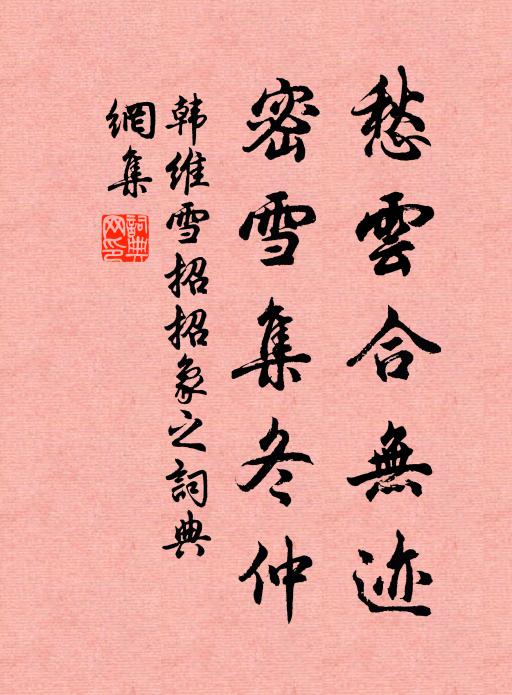 愁雲合無迹
密雪集冬仲
韩維雪招招象之詞典
網集
詞典
网印